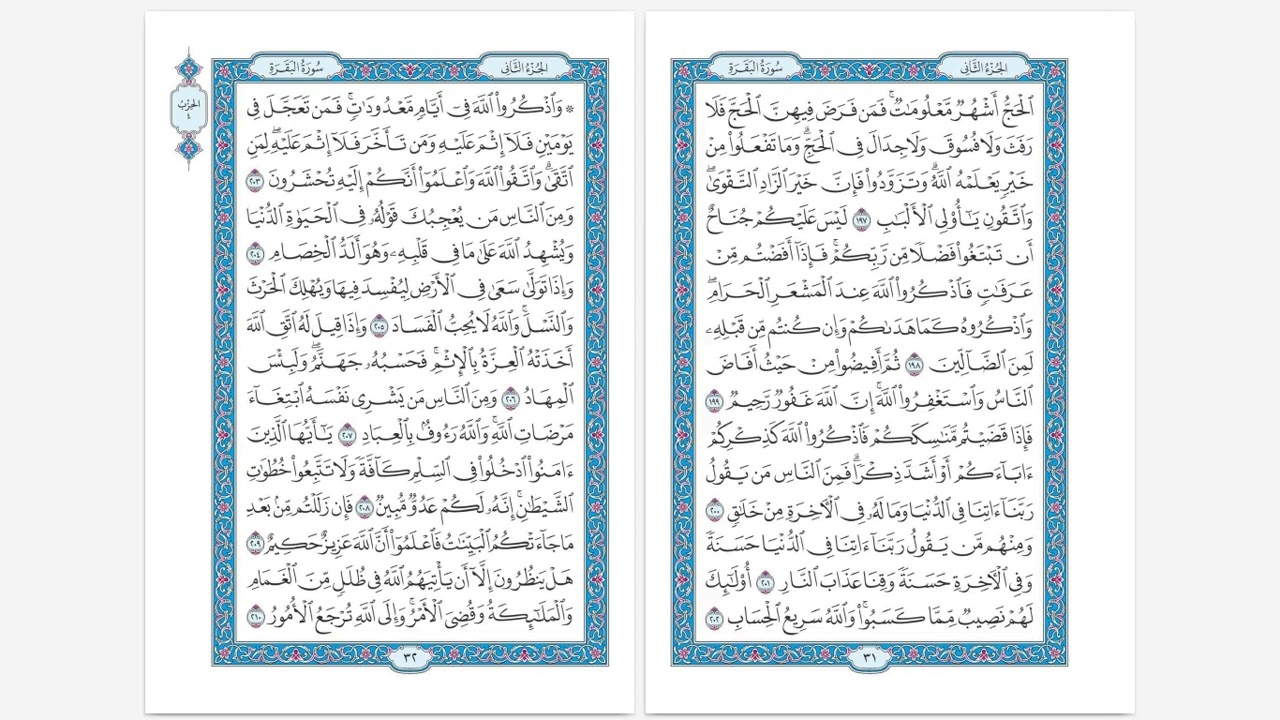 الجُزْءُ الثَّانِي
سُورَةُ البَقَرَةِ
ٱلْحَجُّ أَشْهُرٌ مَّعْلُومَٰتٌ ۚ فَمَن فَرَضَ فِيهِنَّ ٱلْحَجَّ فَلَا
رَفَثَ وَلَا فُسُوقَ وَلَا جِدَالَ فِى ٱلْحَجِّ ۗ وَمَا تَفْعَلُوا۟ مِنْ
خَيْرٍ يَعْلَمْهُ ٱللَّهُ ۗ وَتَزَوَّدُوا۟ فَإِنَّ خَيْرَ ٱلزَّادِ ٱلتَّقْوَىٰ ۚ
وَٱتَّقُونِ يَٰٓأُو۟لِى ٱلْأَلْبَٰبِ ١٩٧ لَيْسَ عَلَيْكُمْ جُنَاحٌ
أَن تَبْتَغُوا۟ فَضْلًا مِّن رَّبِّكُمْ ۚ فَإِذَآ أَفَضْتُم مِّنْ
عَرَفَٰتٍ فَٱذْكُرُوا۟ ٱللَّهَ عِندَ ٱلْمَشْعَرِ ٱلْحَرَامِ ۖ
وَٱذْكُرُوهُ كَمَا هَدَىٰكُمْ وَإِن كُنتُم مِّن قَبْلِهِۦ
لَمِنَ ٱلضَّآلِّينَ ١٩٨ ثُمَّ أَفِيضُوا۟ مِنْ حَيْثُ أَفَاضَ
ٱلنَّاسُ وَٱسْتَغْفِرُوا۟ ٱللَّهَ ۚ إِنَّ ٱللَّهَ غَفُورٌ رَّحِيمٌ ١٩٩
فَإِذَا قَضَيْتُم مَّنَٰسِكَكُمْ فَٱذْكُرُوا۟ ٱللَّهَ كَذِكْرِكُمْ
ءَابَآءَكُمْ أَوْ أَشَدَّ ذِكْرًا ۗ فَمِنَ ٱلنَّاسِ مَن يَقُولُ
رَبَّنَآ ءَاتِنَا فِى ٱلدُّنْيَا وَمَا لَهُۥ فِى ٱلْءَاخِرَةِ مِنْ خَلَٰقٍ ٢٠٠
وَمِنْهُم مَّن يَقُولُ رَبَّنَآ ءَاتِنَا فِى ٱلدُّنْيَا حَسَنَةً
وَفِى ٱلْءَاخِرَةِ حَسَنَةً وَقِنَا عَذَابَ ٱلنَّارِ ٢٠١ أُو۟لَٰٓئِكَ
لَهُمْ نَصِيبٌ مِّمَّا كَسَبُوا۟ ۚ وَٱللَّهُ سَرِيعُ ٱلْحِسَابِ ٢٠٢
٣١
الجُزْءُ الثَّانِي
سُورَةُ البَقَرَةِ
الحِزْبُ
٤
۞ وَٱذْكُرُوا۟ ٱللَّهَ فِىٓ أَيَّامٍ مَّعْدُودَٰتٍ ۚ فَمَن تَعَجَّلَ فِى
يَوْمَيْنِ فَلَآ إِثْمَ عَلَيْهِ وَمَن تَأَخَّرَ فَلَآ إِثْمَ عَلَيْهِ ۚ لِمَنِ
ٱتَّقَىٰ ۗ وَٱتَّقُوا۟ ٱللَّهَ وَٱعْلَمُوٓا۟ أَنَّكُمْ إِلَيْهِ تُحْشَرُونَ ٢٠٣
وَمِنَ ٱلنَّاسِ مَن يُعْجِبُكَ قَوْلُهُۥ فِى ٱلْحَيَوٰةِ ٱلدُّنْيَا
وَيُشْهِدُ ٱللَّهَ عَلَىٰ مَا فِى قَلْبِهِۦ وَهُوَ أَلَدُّ ٱلْخِصَامِ ٢٠٤
وَإِذَا تَوَلَّىٰ سَعَىٰ فِى ٱلْأَرْضِ لِيُفْسِدَ فِيهَا وَيُهْلِكَ ٱلْحَرْثَ
وَٱلنَّسْلَ ۗ وَٱللَّهُ لَا يُحِبُّ ٱلْفَسَادَ ٢٠٥ وَإِذَا قِيلَ لَهُ ٱتَّقِ ٱللَّهَ
أَخَذَتْهُ ٱلْعِزَّةُ بِٱلْإِثْمِ ۚ فَحَسْبُهُۥ جَهَنَّمُ ۚ وَلَبِئْسَ
ٱلْمِهَادُ ٢٠٦ وَمِنَ ٱلنَّاسِ مَن يَشْرِى نَفْسَهُ ٱبْتِغَآءَ
مَرْضَاتِ ٱللَّهِ ۗ وَٱللَّهُ رَءُوفٌۢ بِٱلْعِبَادِ ٢٠٧ يَٰٓأَيُّهَا ٱلَّذِينَ
ءَامَنُوا۟ ٱدْخُلُوا۟ فِى ٱلسِّلْمِ كَآفَّةً وَلَا تَتَّبِعُوا۟ خُطُوَٰتِ
ٱلشَّيْطَٰنِ ۚ إِنَّهُۥ لَكُمْ عَدُوٌّ مُّبِينٌ ٢٠٨ فَإِن زَلَلْتُم مِّنۢ بَعْدِ
مَا جَآءَتْكُمُ ٱلْبَيِّنَٰتُ فَٱعْلَمُوٓا۟ أَنَّ ٱللَّهَ عَزِيزٌ حَكِيمٌ ٢٠٩
هَلْ يَنظُرُونَ إِلَّآ أَن يَأْتِيَهُمُ ٱللَّهُ فِى ظُلَلٍ مِّنَ ٱلْغَمَامِ
وَٱلْمَلَٰٓئِكَةُ وَقُضِىَ ٱلْأَمْرُ ۚ وَإِلَى ٱللَّهِ تُرْجَعُ ٱلْأُمُورُ ٢١٠
٣٢